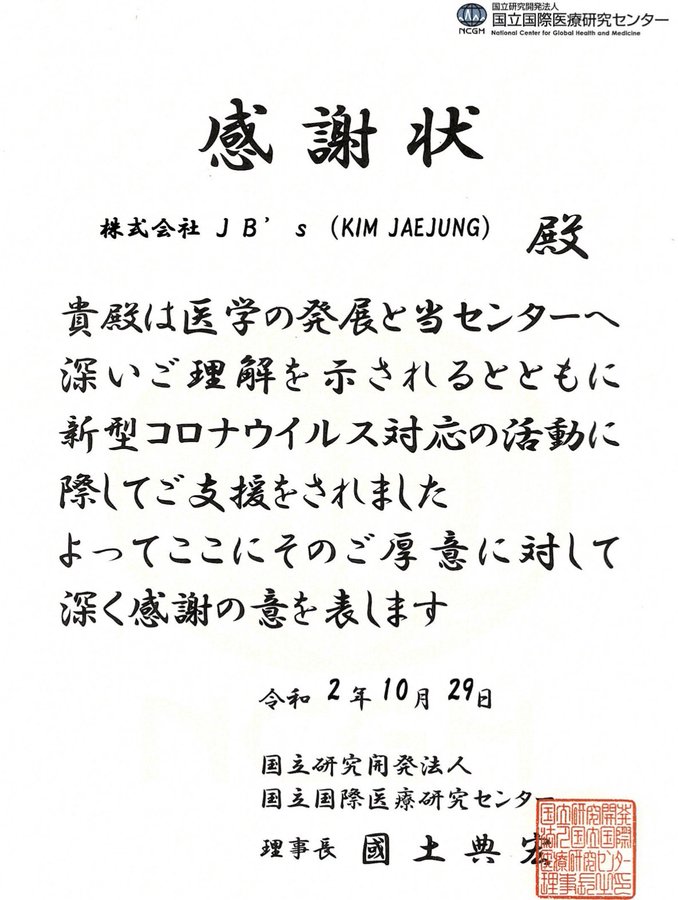 国立研究開発法人
国立国際医療研究センター
NCGM National Center for Global Health and Medicine
感謝状
株式会社 JB’s (KIM JAEJUNG) 殿
貴殿は医学の発展と当センターへ
深いご理解を示されるとともに
新型コロナウイルス対応の活動に
際してご支援をされました
よってここにそのご厚意に対して
深く感謝の意を表します
令和 2年 10月 29日
国立研究開発法人
国立国際医療研究センター
理事長 國土典宏
国立研究開発
法人国立国際
医療研究センター
理事長之印